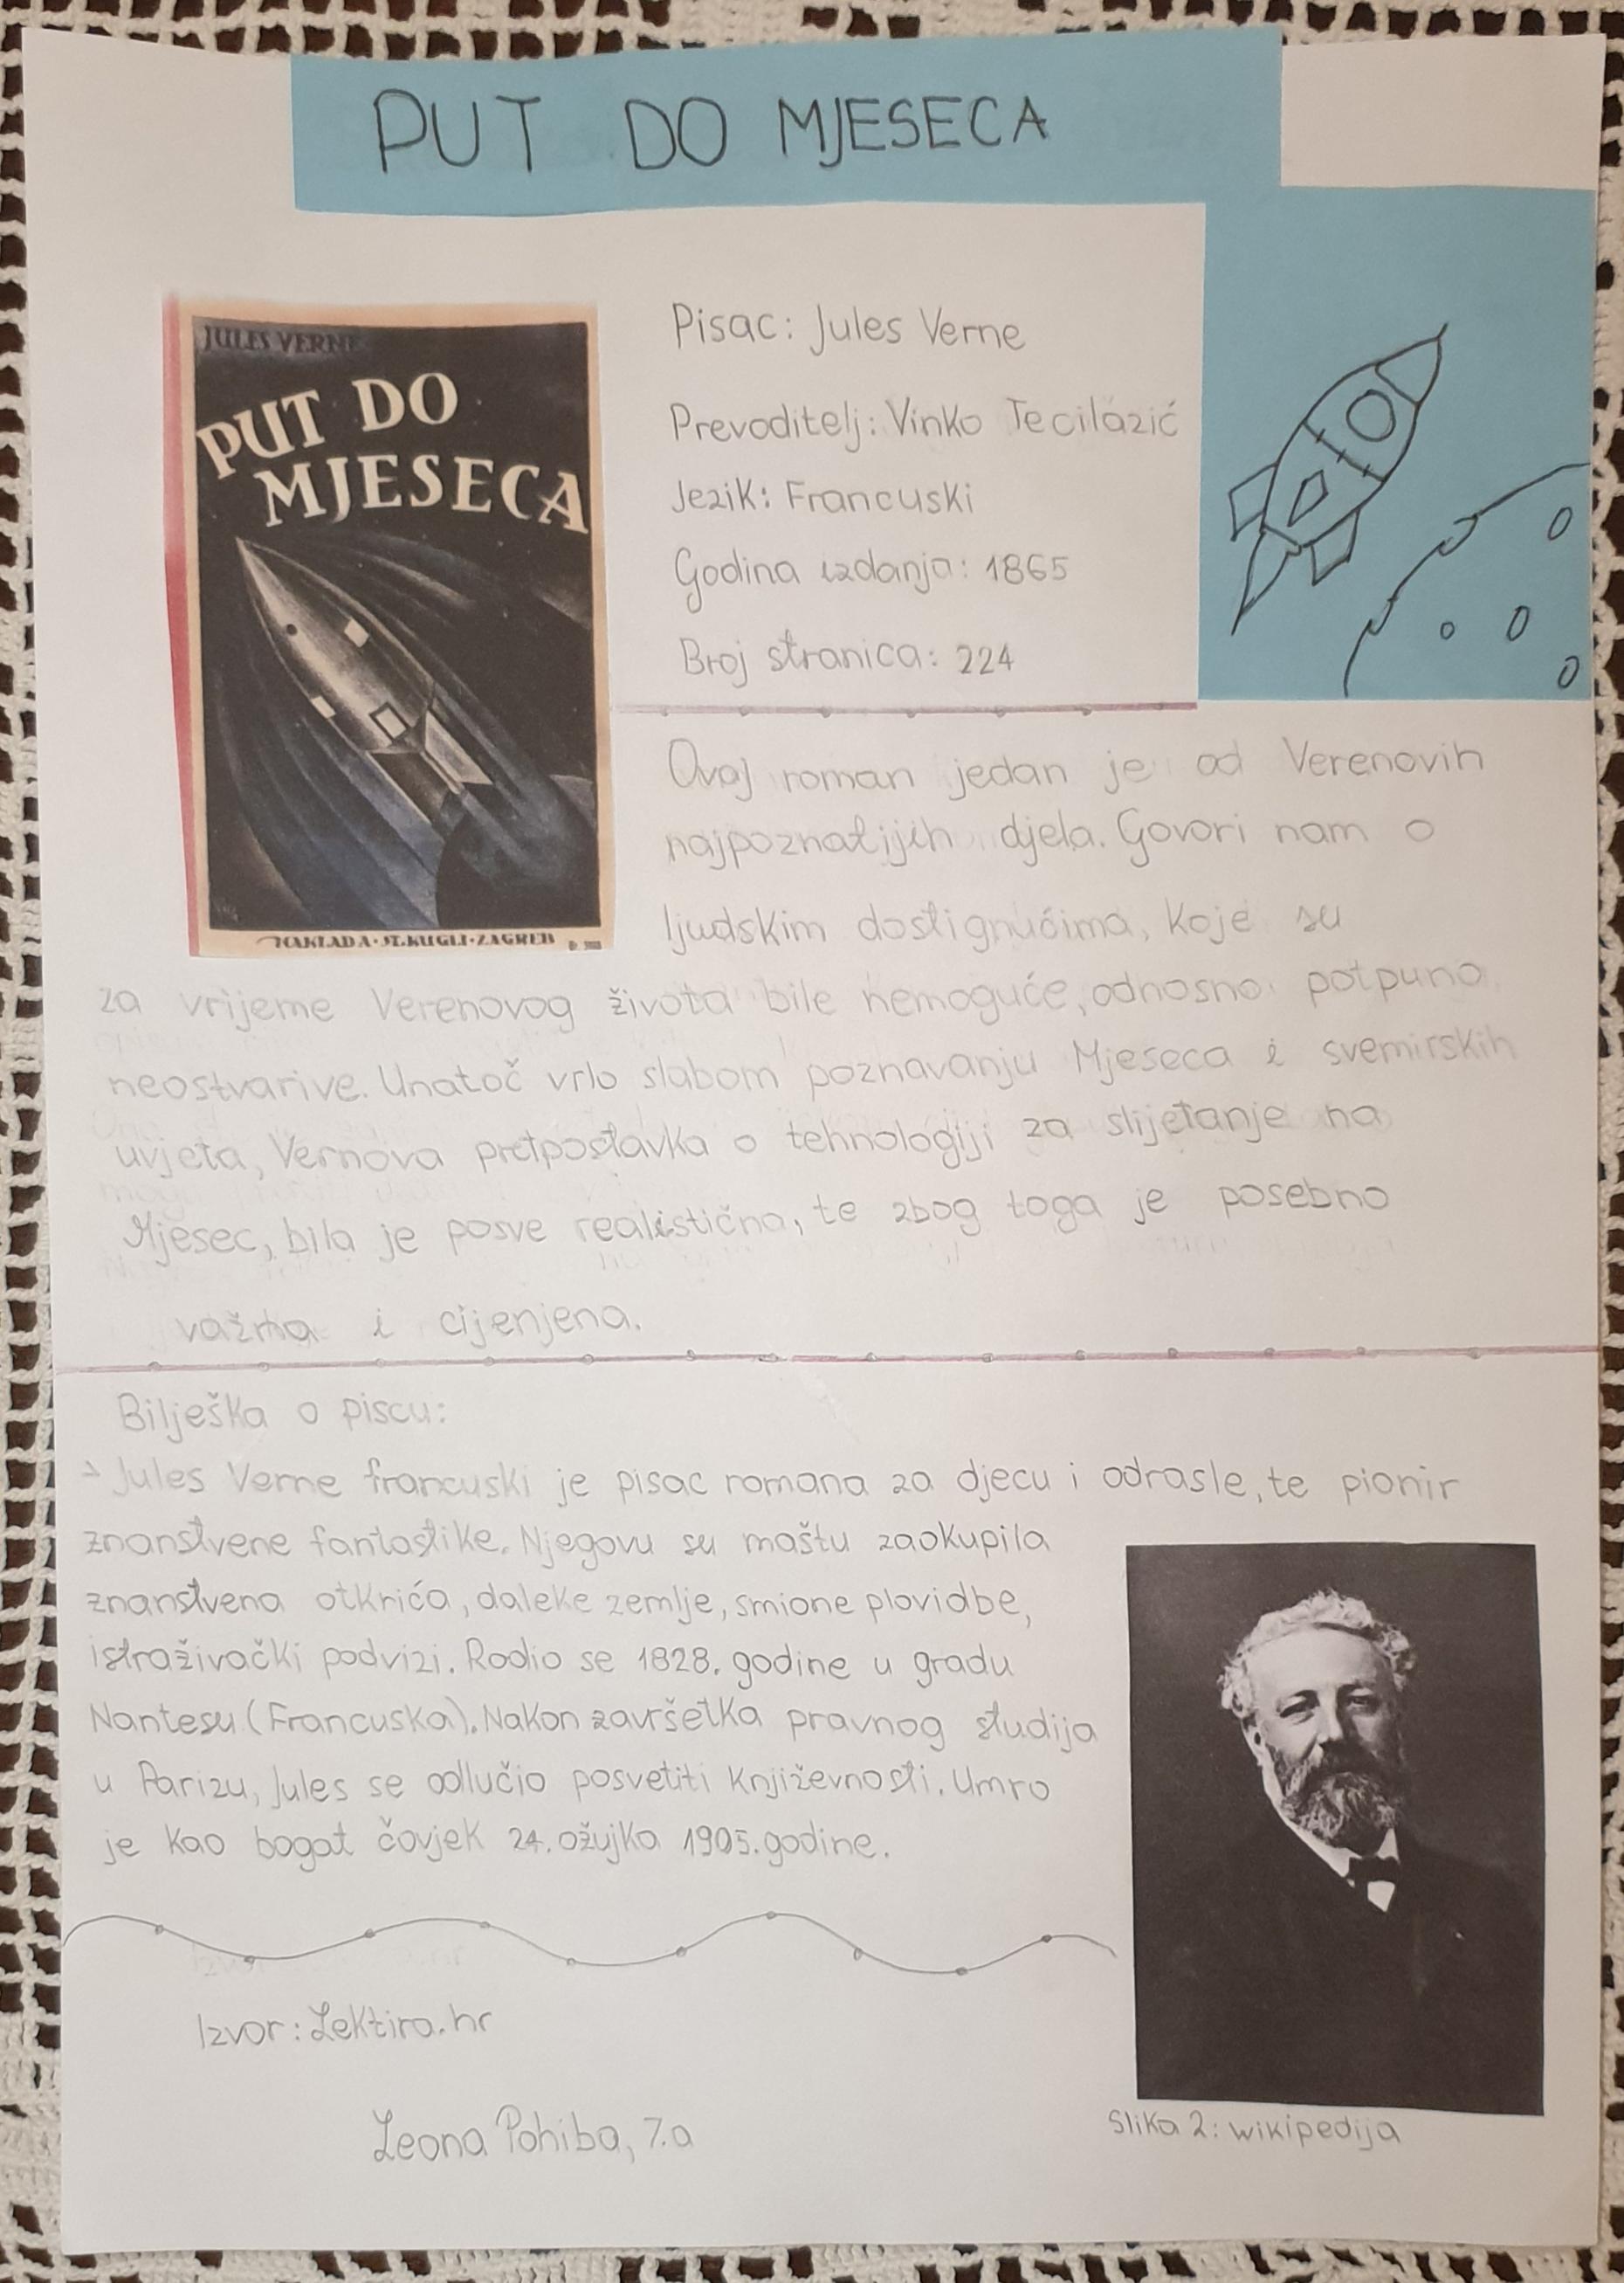 PUT DO MJESECA
JULES VERNE
PUT DO
MJESECA
NAKLADA·ST.KUGLI·ZAGREB
Pisac: Jules Verne
Prevoditelj: Vinko Tecilazić
Jezik: Francuski
Godina izdanja: 1865
Broj stranica: 224
Ovaj roman jedan je od Verenovih
najpoznatijih djela. Govori nam o
ljudskim dostignućima, koje su
za vrijeme Verenovog života bile nemoguće, odnosno potpuno
neostvarive. Unatoč vrlo slabom poznavanju Mjeseca i svemirskih
uvjeta, Vernova pretpostavka o tehnologiji za slijetanje na
Mjesec, bila je posve realistična, te zbog toga je posebno
važna i cijenjena.
Bilješka o piscu:
Jules Verne francuski je pisac romana za djecu i odrasle, te pionir
znanstvene fantastike. Njegovu su maštu zaokupila
znanstvena otkrića, daleke zemlje, smione plovidbe,
istraživački podvizi. Rodio se 1828. godine u gradu
Nantesu (Francuska). Nakon završetka pravnog studija
u Parizu, Jules se odlučio posvetiti književnosti. Umro
je kao bogat čovjek 24. ožujka 1905. godine.
Izvor: Lektira.hr
Leona Pohiba, 7.a
Slika 2: wikipedija